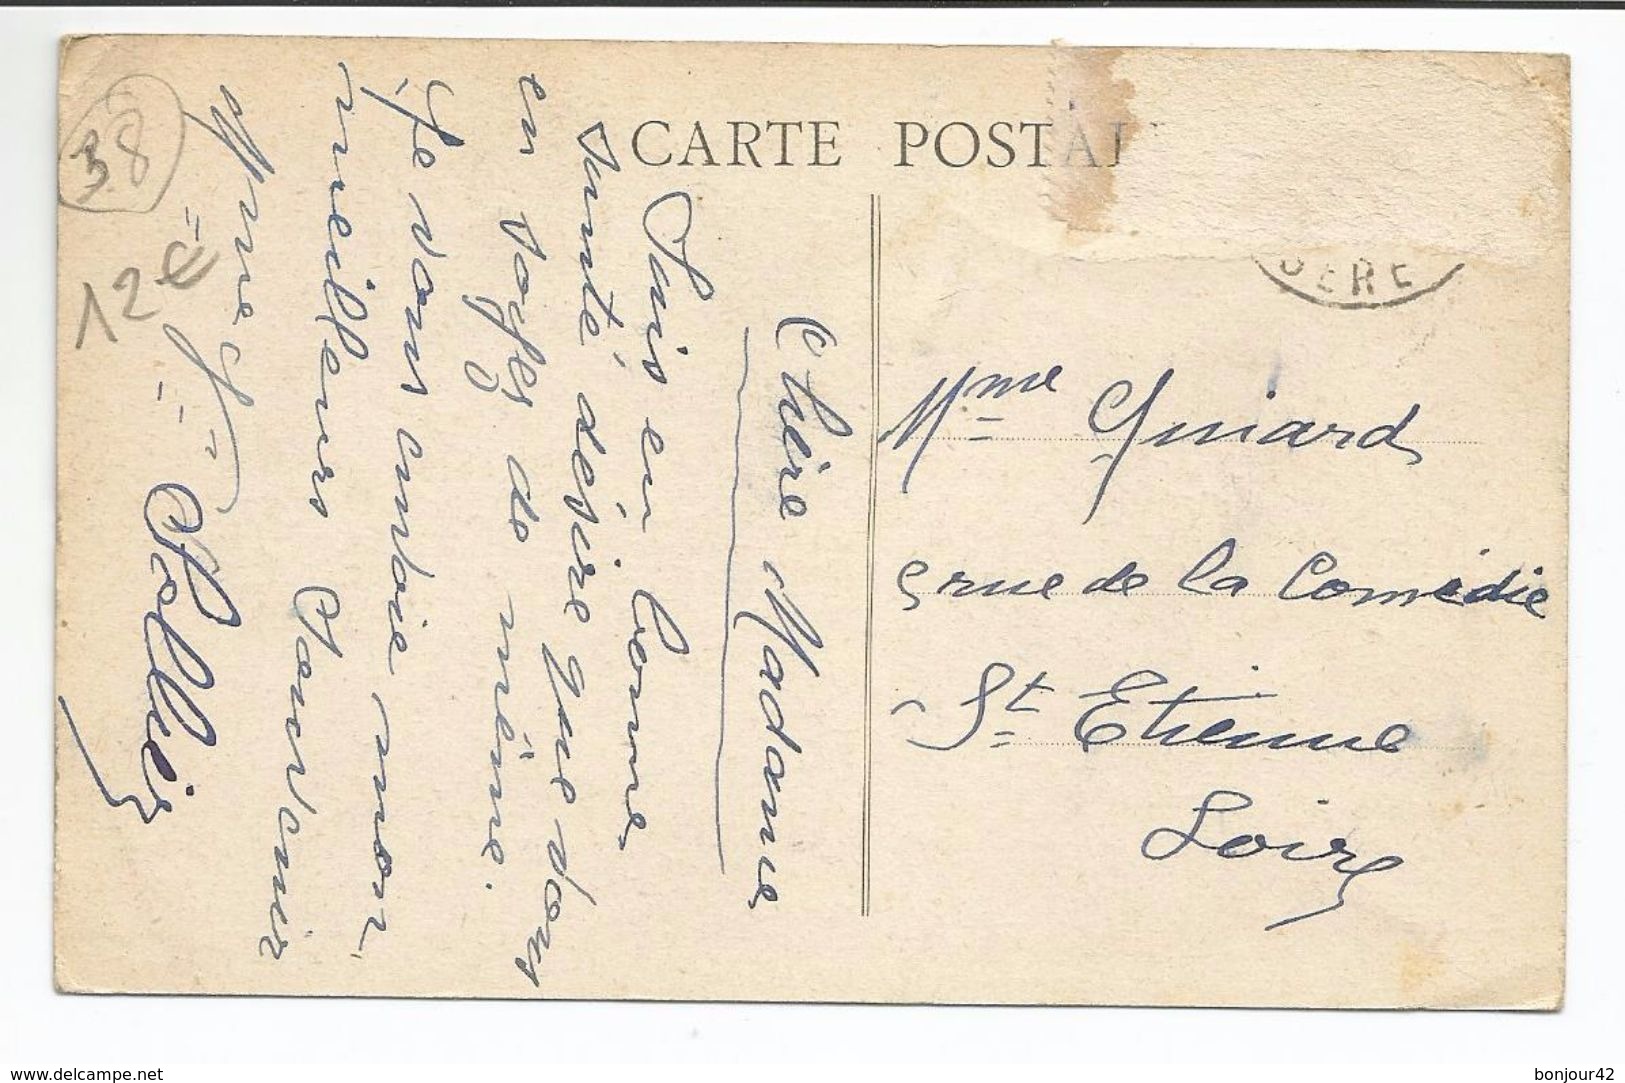 CARTE POSTAL
38
12€
ISERE
Chère Madame
Suis en bonne
santé désire que vous
en soyes de même.
Je vous envoie mon
meilleurs Souvenir
Mme
Sollier
Mme Guiard
5 rue de la Comédie
St Etienne
Loire
www.delcampe.net
bonjour42